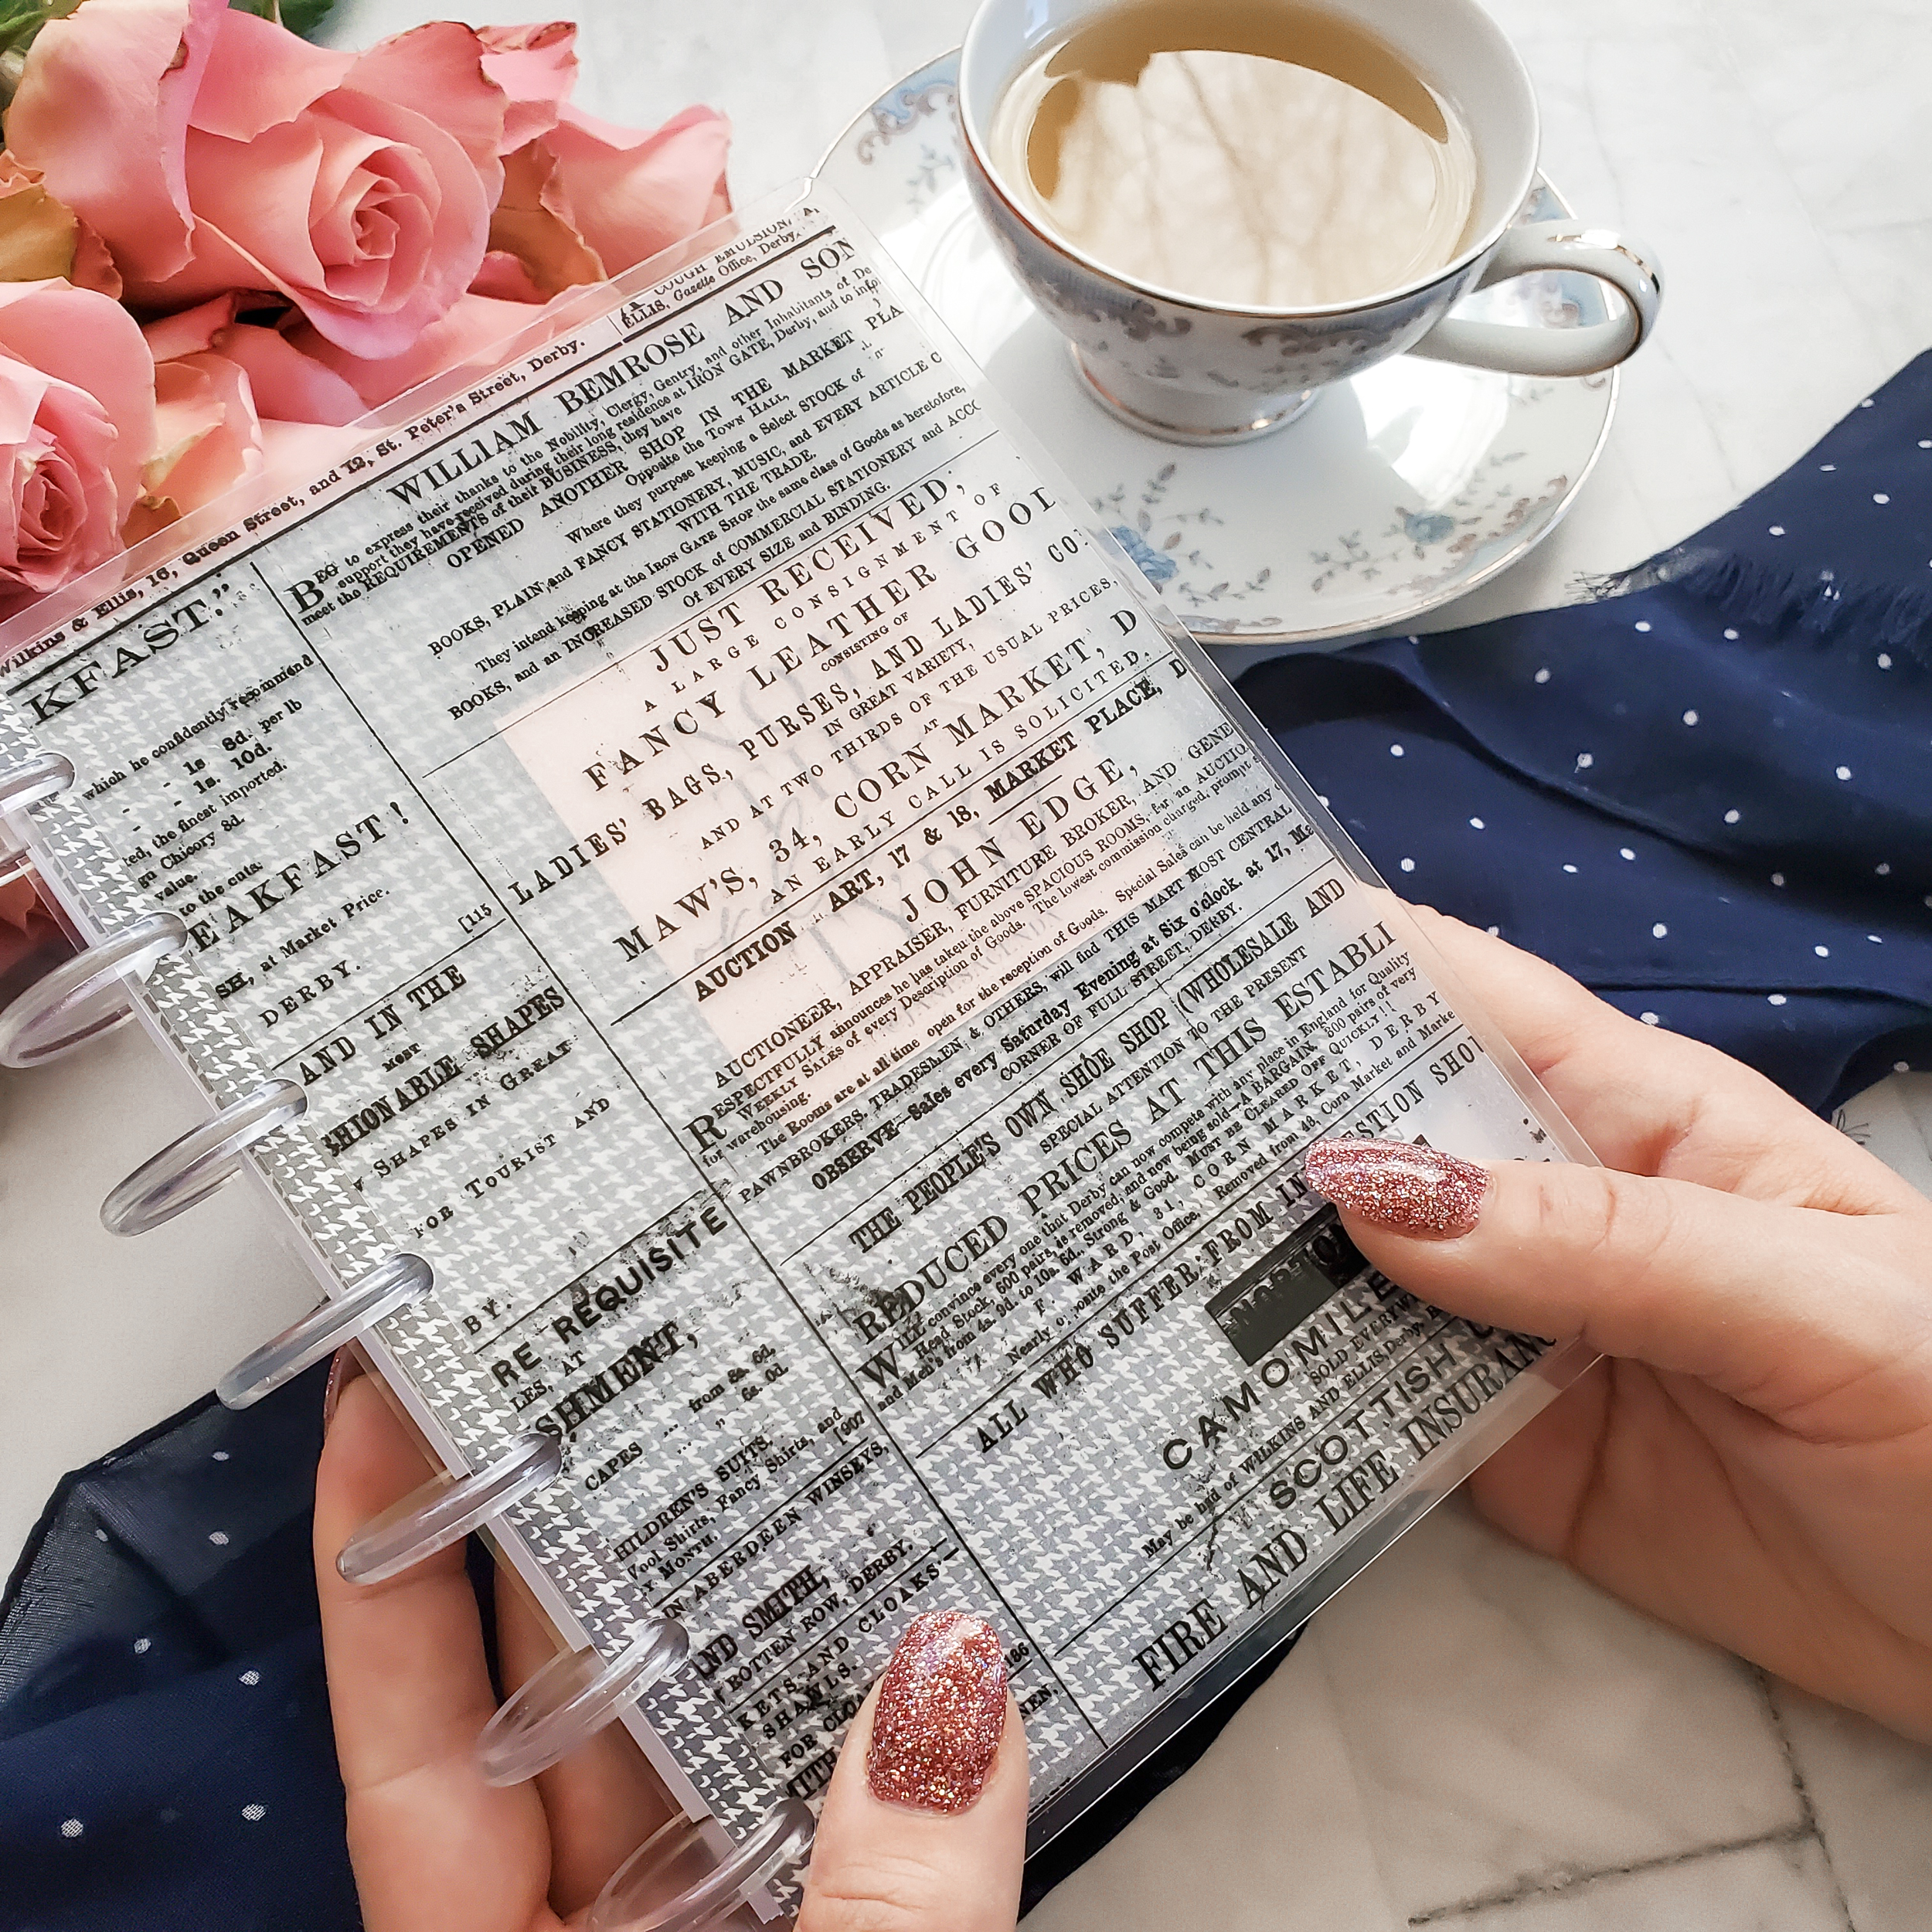 Wilkins & Ellis, 16, Queen Street, and 12, St. Peter's Street, Derby.
KFAST."
which he confidently recommend
- - 1s 8d. per lb
- - 1s. 10d.
ted, the finest imported.
Chicory 8d.
value.
to the cnts.
EAKFAST!
SH, at Market Price. [115
DERBY.
AND IN THE
MOST
SHIONABLE SHAPES
SHAPES IN GREAT
FOR TOURIST AND
BY.
RE REQUISITE
LES, AT
SHMENT,
CAPES ... from 8s. 6d.
... ,, 6s. 0d.
HILDREN'S SUITS,
Wool Shirts, Fancy Shirts, and
Y MONTH. [907
IN ABERDEEN WINSEYS,
ND SMITH,
ROTTEN ROW, DERBY.
KETS AND CLOAKS
SHAWLS.
FOR CLOA
186
NEN,
COUGH EMULSION,
ELLIS, Gazette Office, Derby.
WILLIAM BEMROSE AND SON
BEG to express their thanks to the Nobility, Clergy, Gentry, and other Inhabitants of De
support they have received during their long residence at IRON GATE, Derby, and to info
meet the REQUIREMENTS of their BUSINESS, they have
OPENED ANOTHER SHOP IN THE MARKET PLA
Opposite the TOWN HALL,
Where they purpose keeping a Select STOCK of
BOOKS, PLAIN and FANCY STATIONERY, MUSIC, and EVERY ARTICLE C
WITH THE TRADE.
They intend keeping at the IRON GATE SHOP the same class of Goods as heretofore,
BOOKS, and an INCREASED STOCK of COMMERCIAL STATIONERY and ACCO
of EVERY SIZE and BINDING.
JUST RECEIVED,
A LARGE CONSIGNMENT OF
FANCY LEATHER GOOD
CONSISTING OF
LADIES' BAGS, PURSES, AND LADIES' CO
IN GREAT VARIETY,
AND AT TWO THIRDS OF THE USUAL PRICES,
AT
MAW'S, 34, CORN MARKET, D
AN EARLY CALL IS SOLICITED.
AUCTION ART, 17 & 18, MARKET PLACE, D
JOHN EDGE,
AUCTIONEER, APPRAISER, FURNITURE BROKER, AND GENE
RESPECTFULLY announces he has taken the above SPACIOUS ROOMS, for an AUCTIO
WEEKLY SALES of every Description of Goods. The lowest commission charged, prompt s
for warehousing.
The Rooms are at all time open for the reception of Goods. Special Sales can be held any
PAWNBROKERS, TRADESMEN & OTHERS, will find THIS MART MOST CENTRAL
OBSERVE—Sales every Saturday Evening at Six o'clock, at 17, Ma
CORNER OF FULL STREET, DERBY.
THE PEOPLE'S OWN SHOE SHOP (WHOLESALE AND
SPECIAL ATTENTION TO THE PRESENT
REDUCED PRICES AT THIS ESTABLI
WILL convince every one that Derby can now compete with any place in England for Quality
Head Stock, 600 pairs, as removed, and now being sold—A BARGAIN, 800 pairs of very
and Men's from 4s. 9d. to 10s. 6d., Strong & Good. MUST BE CLEARED OFF QUICKLY!!
F. WARD, 31, CORN MARKET, DERBY
Nearly opposite the Post Office, Removed from 48, Corn Market and Marke
ALL WHO SUFFER FROM IN ESTION SHOU
CAMOMILE
SOLD EVERYW
May be had of WILKINS AND ELLIS Derby,
SCOTTISH
FIRE AND LIFE INSURANC